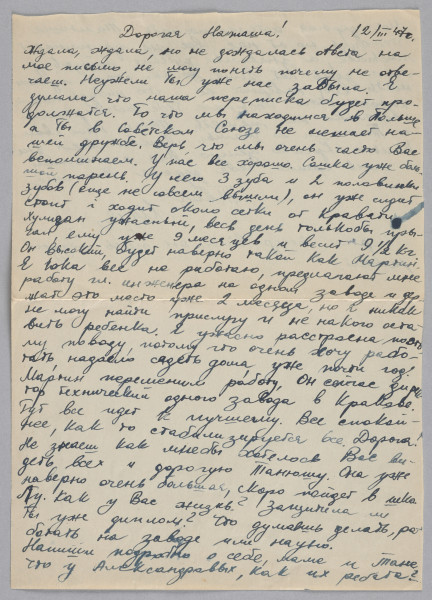 Дорогая Наташа! 12/III 47г.
Ждала, ждала, но не дождалась ответа на
мое письмо не могу понять почему не отве-
чаеш. Неужели Ты уже нас забыла. Я
думала что наша переписка будет про-
должатся. То что мы находимся в Польше
а Ты в Советском Союзе не мешает на-
шей дружбе. Верь что мы очень часто Вас
вспоминаем. У нас все хорошо. Сашка уже боль-
шой парень. У него 3 зуба и 2 половинки
зубов (еще не совсем вышли), он уже сидит
стоит и ходит около сетки от кровати.
Хулиган ужасный, весь день только бы
ему уже 9 месяцев и весит 9 1/2 кг.
Он высокий, будет наверно такой как Мартин.
Я пока все не работаю, предлагают мне
работу гл. инженера на одном заводе и дер-
жат это место уже 2 месяца, но я никак
не могу найти прислугу и не на кого оста-
вить ребенка. Я ужасно расстроена по
му поводу, потому что очень хочу рабо-
тать надоело сидеть дома уже почти год.
Мартин переменил работу, Он сейчас дирек-
тор технический одного завода в Кракове.
Тут все идет к лучшему. Все спокой-
нее, как то стабилизируется все. Дорога!
Не знаеш как мне бы хотелось Вас ви-
деть, всех и дорогую Танюшу. Она уже
наверно очень большая, скоро пойдет в шко-
лу. Как у Вас жизнь? Защитила ли
Ты уже диплом? Что думаешь делать, ра-
ботать на заводе или научно.
Напиши подробно о себе, маме и Тане.
Что у Александравых, как их ребята?